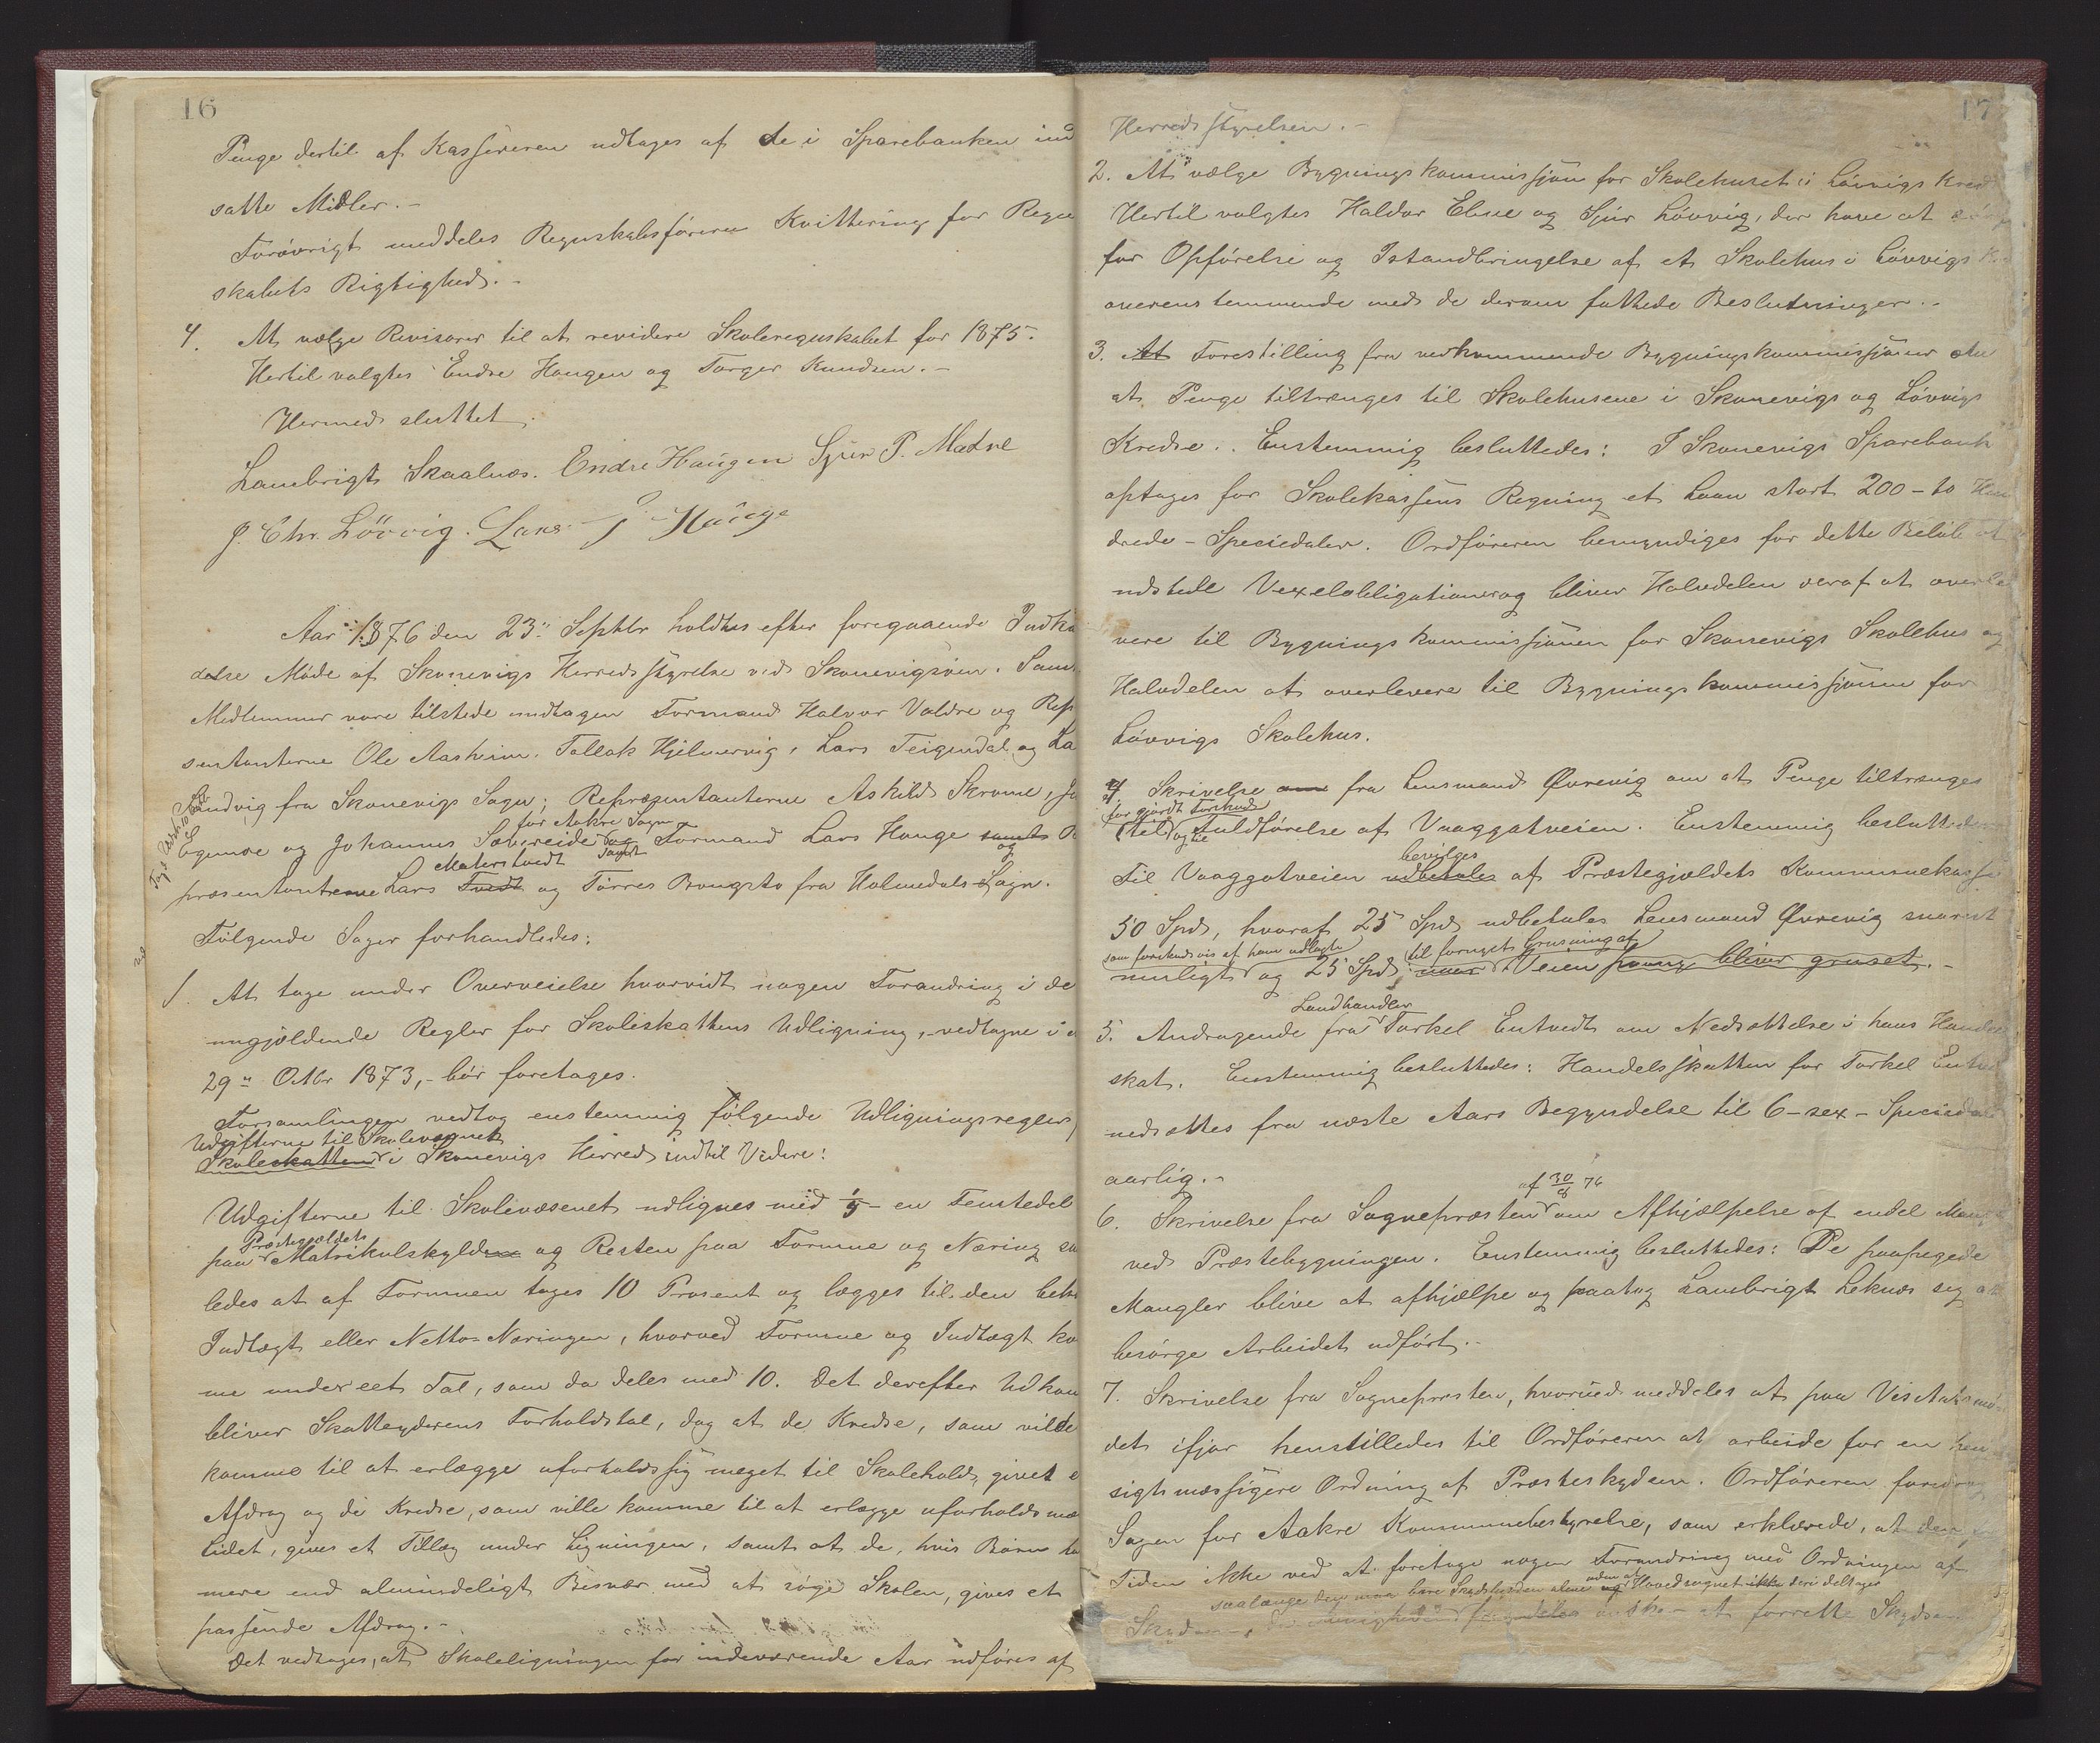 16
Penge dertil af Kassereren udtages af de i Sparebanken ind
satte Midler.-
Forøvrigt meddeles Regnskabsføreren Kvittering for Regn
skabets Rigtighed.-
4. At vælge Revisorer til at revidere Skoleregnskabet for 1875.
Hertil valgtes Endre Haugen og Torger Knudsen.-
Hermed sluttet.
Lambrigt Skaalnæs. Endre Haugen Sjur P. Mædre
J. Chr. Løvvig. Lars J. Hauge
Aar 1876 den 23de Septbr holdtes efter foregaaende Indka
delse Møde af Skonevigs Herredsstyrelse ved Skonevigsøen. Samt
Medlemmer vare tilstede undtagen Formand Halvor Valdre og Rep
sentanterne Ole Aasheim, Tallak Hjelmervig, Lars Teigendal og La
Sandvig fra Skonevigs Sogn; Repræsentanterne Askild Skromme, Jo
for Aakre Sogn
Egenæs og Johannes Sævereide og Formand Lars Hauge samt R
Matersstvedt samt og
præsentanterne Lars Tvedt og Tørres Vongsto fra Holmedals Sogn.
Følgende Sager forhandledes:
1. At tage under Overveielse hvorvidt nogen Forandring i de
nugjældende Regler for Skoleskattens Udligning, - vedtagne i
29de Octbr 1873, - bør foretages.
Forsamlingen vedtog enstemmig følgende Udligningsregler
Udgifterne til Skolevæsenet
Skoleskatten i Skonevigs Herred indtil Videre:
Udgifterne til Skolevæsenet udlignes med 1/5 - en Femtedel
Præstegjældets
paa Matrikulskylden og Resten paa Formue og Næring saa
ledes at af Formuen tages 10 Prosent og lægges til den
Indtægt eller Netto-Næringen, hvorved Formue og Indtægt kom
me under eet Tal, som da deles med 10. Det derefter Udkom
bliver Skatteyderens Forholdstal, dog at de Kredse, som vilde
komme til at erlægge uforholdssig meget til Skolehold, givet e
Afdrag og de Kredse, som ville komme til at erlægge uforholdsmæ
lidet, gives et Tillæg under Ligningen, samt at de, hvis Børn ha
mere end almindeligt Besvær med at søge Skolen, gives et
passende Afdrag.-
Det vedtages, at Skoleligningen for indeværende Aar udføres af
17
Herredsstyrelsen.-
2. At vælge Bygningskommissjon for Skolehuset i Løvvigs Kred
Hertil valgtes Haldor Ebne og Sjur Løvvig, der have at sørge
for Opførelse og Istandbringelse af et Skolehus i Løvvigs K
overensstemmende med de derom fattede Beslutninger.-
3. At Forestilling fra vedkommende Bygningskommissjoner om
at Penge tiltrænges til Skolehusene i Skonevigs og Løvvigs
Kredse. Enstemmig besluttedes: I Skonevigs Sparebank
optages for Skolekassens Regning et Laan stort 200 - to Hun
drede - Speciedaler. Ordføreren bemyndiges for dette Beløb at
udstede Vexelobligationer og bliver Halvdelen deraf at overle
vere til Bygningskommissjonen for Skonevigs Skolehus og
Halvdelen at overlevere til Bygningskommissjonen for
Løvvigs Skolehus.
4. Skrivelse om fra Lensmand Øvrevig om at Penge tiltrænges
for gjordt Forskud
til og til Fuldførelse af Vaaggatveien. Enstemmig besluttedes
bevilges
Til Vaaggatveien udbetales af Præstegjældets Kommunekasse
50 Spd, hvoraf 25 Spd udbetales Lensmand Øvrevig snarest
som forskudsvis af ham udlagte til fornyet Grusning af
muligt og 25 Spd naar Veien paany bliver gruset.-
Landhandler
5. Andragende fra Torkel Entvedt om Nedsættelse i hans Handels
skat. Enstemmig besluttedes: Handelsskatten for Torkel Entved
nedsættes fra næste Aars Begyndelse til 6 - sex - Speciedaler
aarlig.-
af 30/8 76
6. Skrivelse fra Sognepræsten om Afhjælpelse af endel Mang
ved Præstebygningen. Enstemmig besluttedes: De paapegede
Mangler blive at afhjælpe og paatog Lambrigt Leknæs sig at
besørge Arbeidet udført.-
7. Skrivelse fra Sognepræsten, hvorved meddeles at paa Visitatsmø
det ifjor henstilledes til Ordføreren at arbeide for en hen
sigtsmæssigere Ordning af Præsteskydsen. Ordføreren foredrog
Sagen for Aakre Kommunebestyrelse, som erklærede, at den for
Tiden ikke ved at foretage nogen Forandring med Ordningen af
saalænge den maa bære Skydsbyrden alene og uden at Hovedsognet ikke deri deltager
Skydsen, at forrette Skydsen